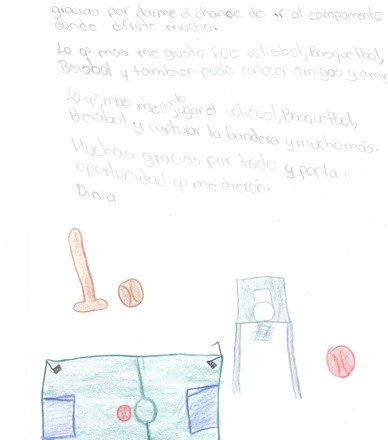 gracias por darme el chance de ir al campamento
donde difrute mucho.
Lo q mas me gusto fue voliebol, Basquetbol,
Beisbol y tambien pude conocer amigos y ami
Lo q mas me gusto jugar el voliebol, Basquetbol,
Beisbol y capturar la bandera y mucho más.
Muchas gracias por todo y por la
oportunidad q me dieron.
Dinia